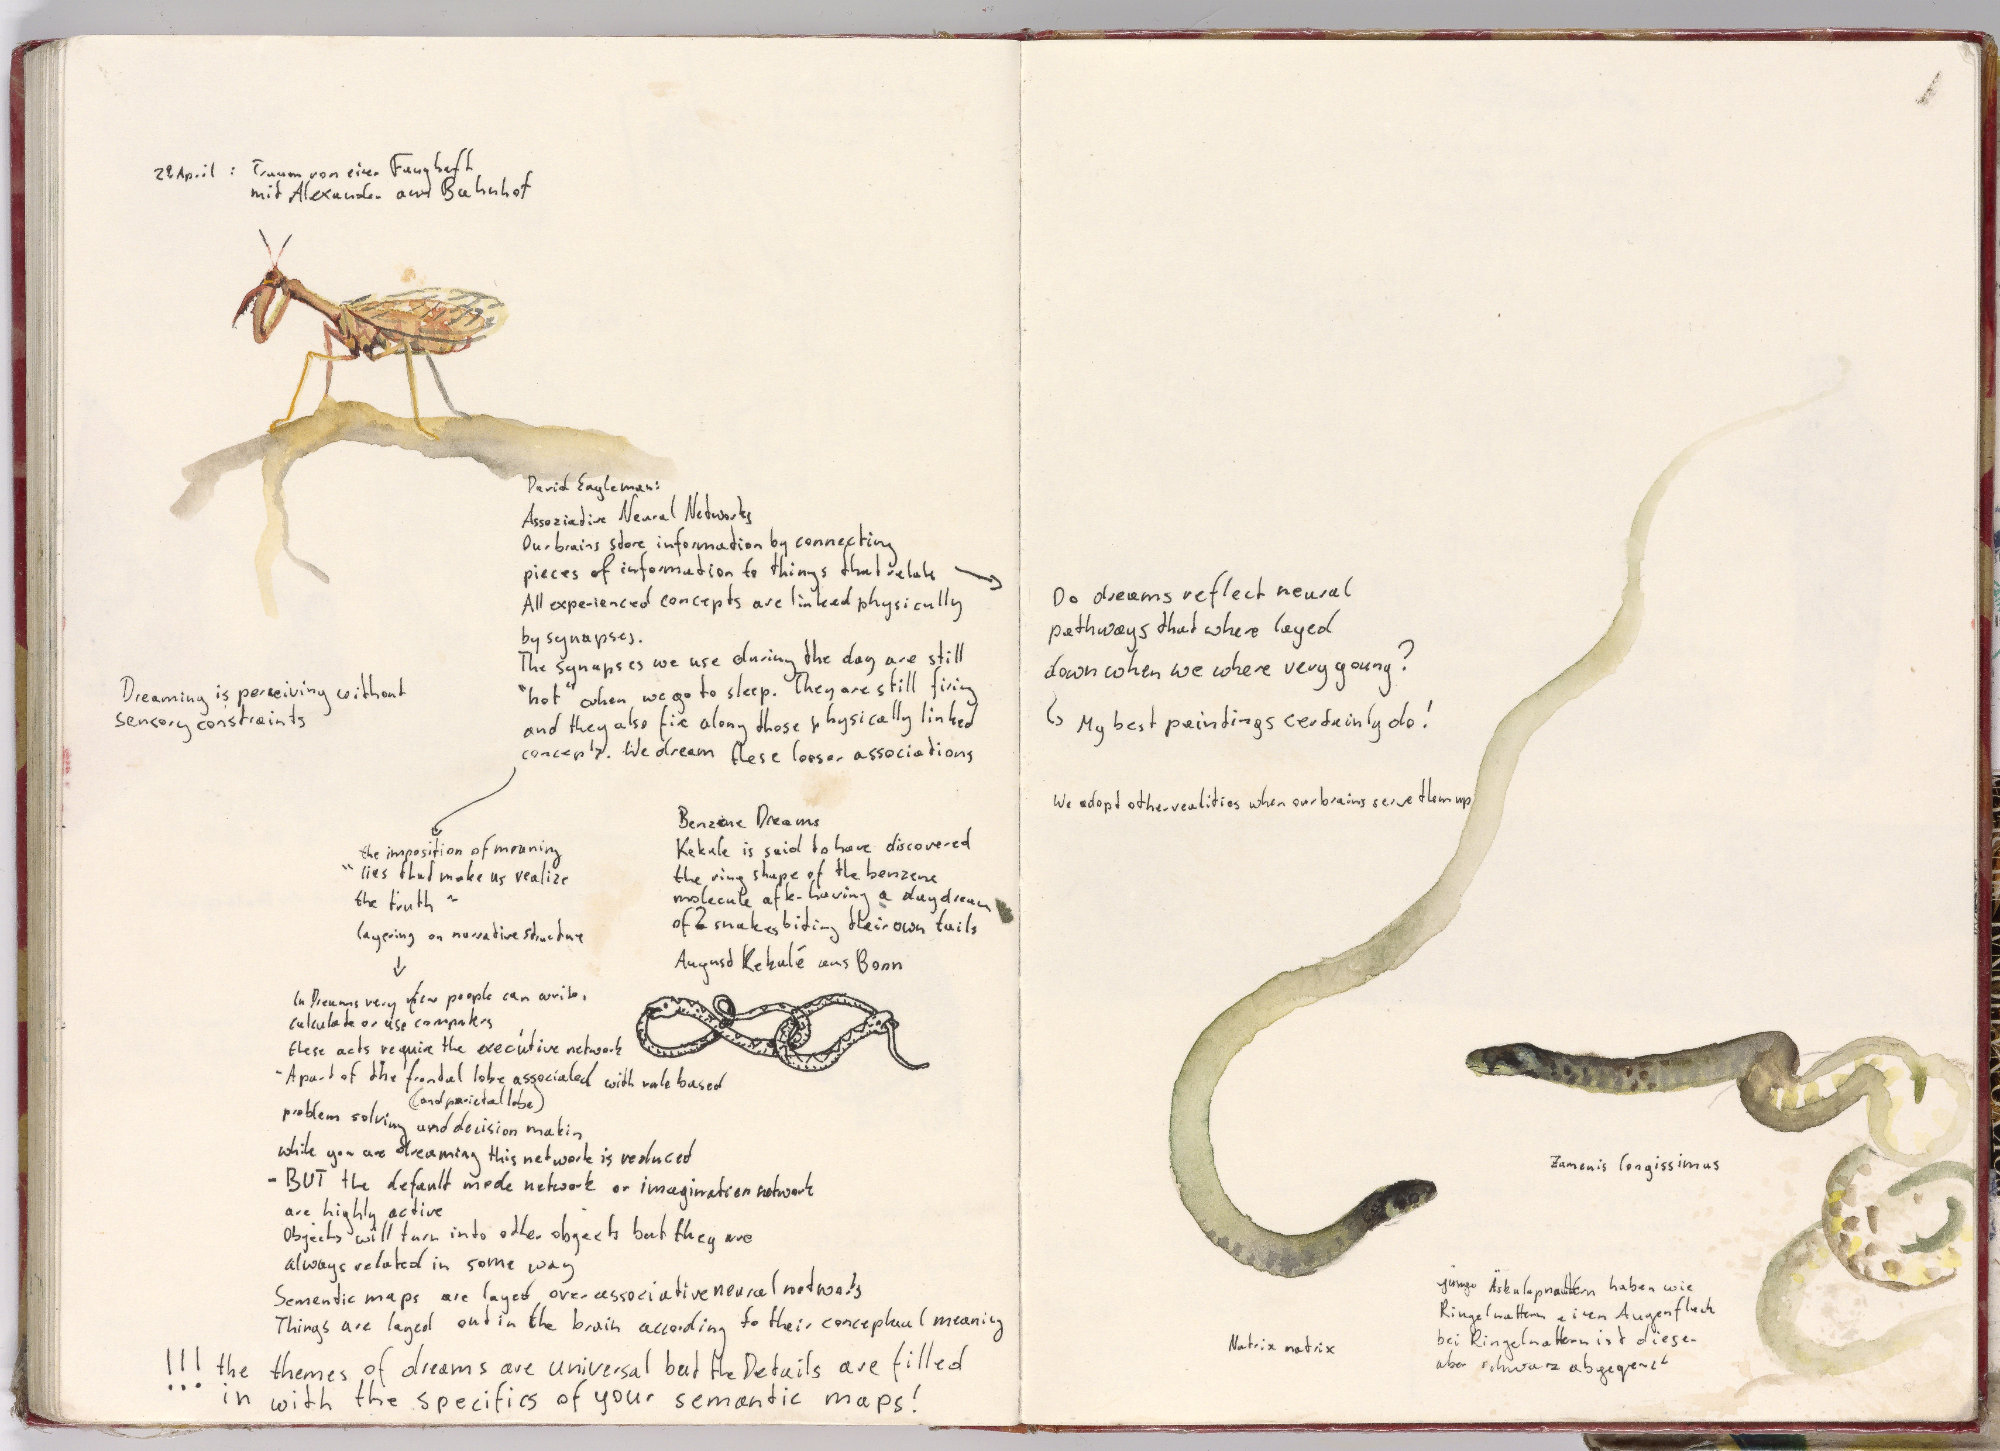 28 April : Traum von einer Fanghaft
mit Alexander am Bahnhof
David Eagleman:
Assoziative Neural Networks
Our brains store information by connecting
pieces of information to things that relate
All experienced concepts are linked physically
by synapses.
The synapses we use during the day are still
"hot" when we go to sleep. They are still firing
and they also fire along those physically linked
concepts. We dream these looser associations
Dreaming is perceiving without
sensory constraints
the imposition of meaning
"lies that make us realize
the truth"
layering on narrative structure
In Dreams very few people can write,
calculate or use computers
these acts require the executive network
- A part of the frontal lobe associated with rule based
(and parietal lobe)
problem solving and decision makin
while you are dreaming this network is reduced
- BUT the default mode network or imagination network
are highly active
Objects will turn into other objects but they are
always related in some way
Sementic maps are layed over associative neural networks
Things are layed out in the brain according to their conceptual meaning
!!! the themes of dreams are universal but the Details are filled
in with the specifics of your semantic maps!
Benzene Dreams
Kekule is said to have discovered
the ring shape of the benzene
molecule after having a daydream
of 2 snakes biting their own tails
August Kekulé aus Bonn
Do dreams reflect neural
pathways that where layed
down when we where very young?
↳ My best paintings certainly do!
We adopt other realities when our brains serve them up
Zamenis longissimus
Natrix natrix
junge Äskulapnattern haben wie
Ringelnattern einen Augenfleck
bei Ringelnattern ist dieser
aber schwarz abgegrenzt